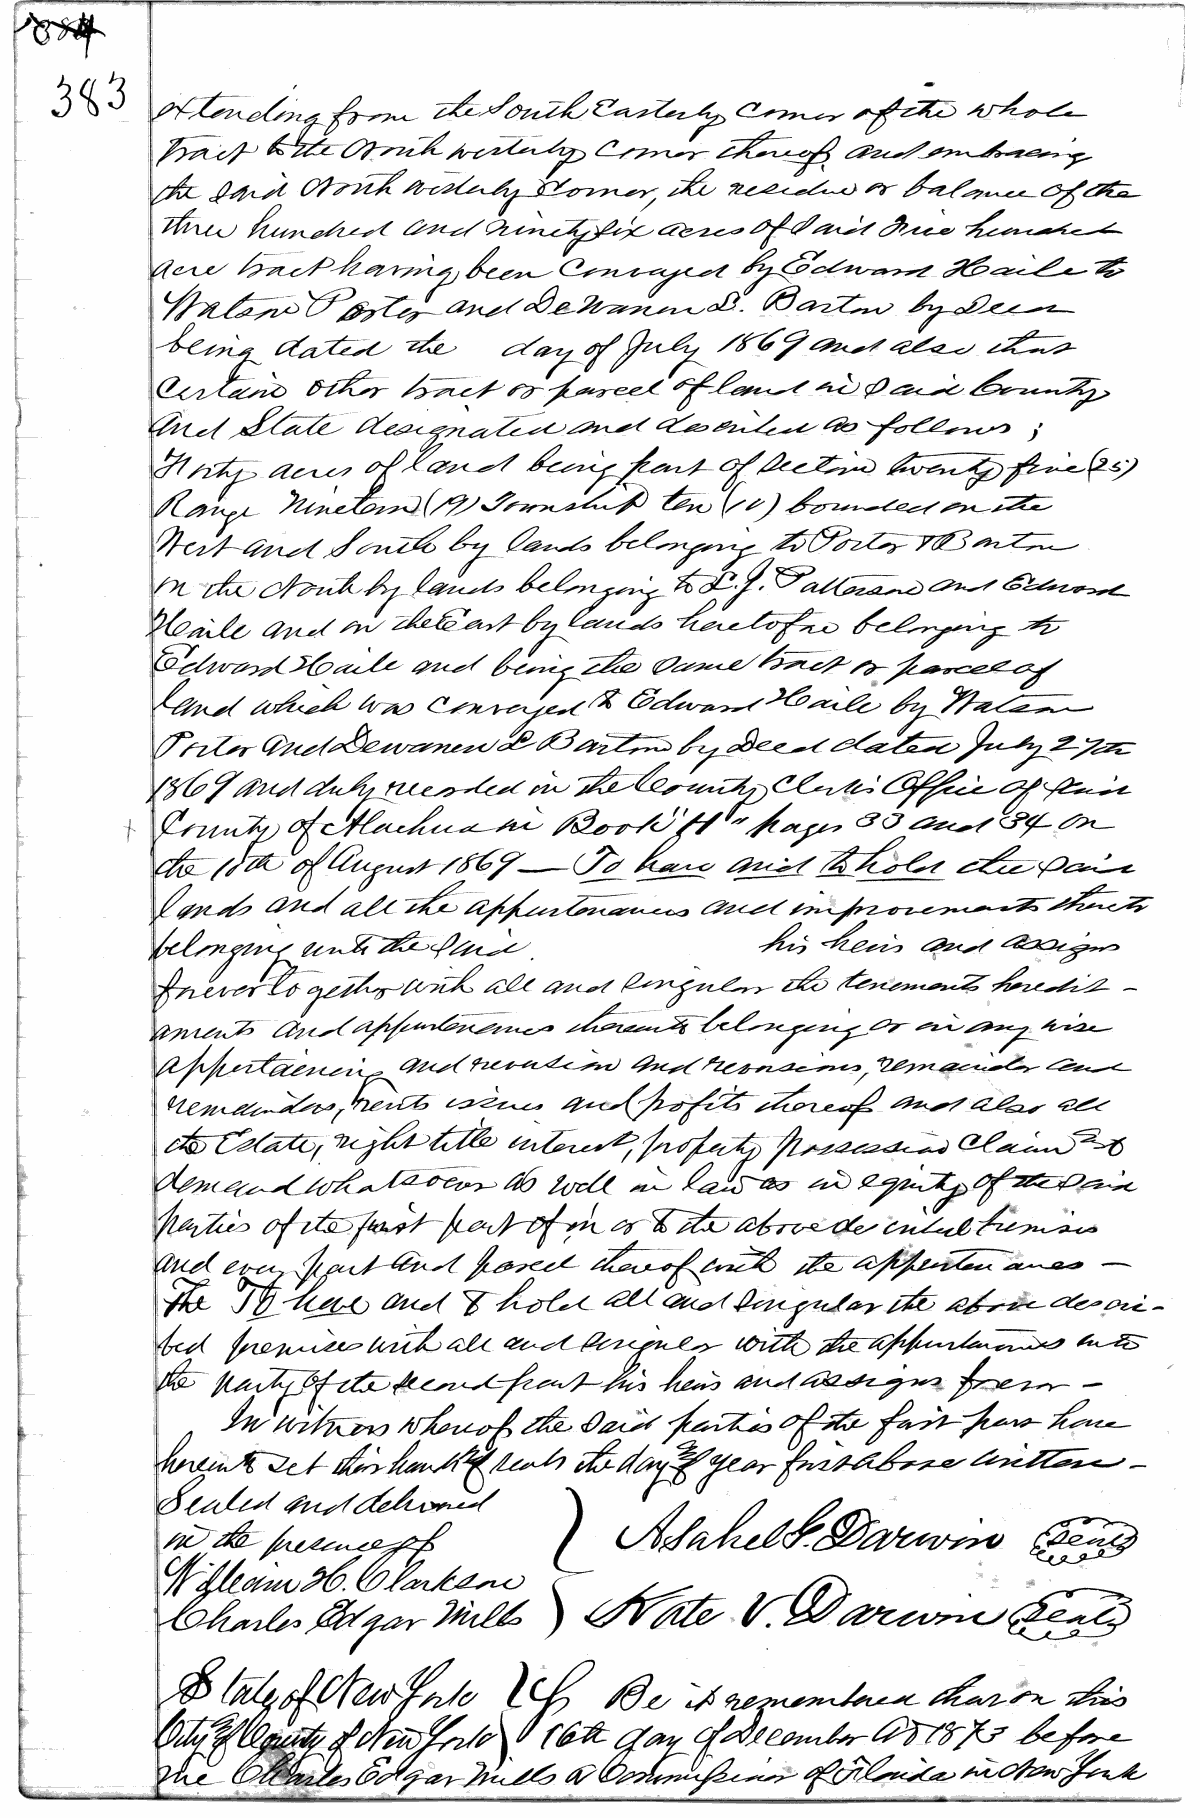 383
extending from the South Easterly Corner of the whole
tract to the North westerly Corner thereof and embracing
the said North westerly Corner, the residue or balance of the
three hundred and ninety six acres of said Five hundred
acre tract having been Conveyed by Edward Haile to
Watson Porter and Dewanen L. Barton by Deed
being dated the day of July 1869 and also that
certain other tract or parcel of land in said County
and State designated and described as follows ;
Forty acres of land being part of Section twenty five (25)
Range Nineteen (19) Township ten (10) bounded on the
West and South by lands belonging to Porter & Barton
on the North by lands belonging to L. J. Patterson and Edward
Haile and on the East by lands heretofore belonging to
Edward Haile and being the same tract or parcel of
land which was conveyed to Edward Haile by Watson
Porter and Dewanen L Barton by Deed dated July 27th
1869 and duly recorded in the County Clerks Office of said
County of Alachua in Book "H" pages 33 and 34 on
the 10th of August 1869 — To have and to hold the said
lands and all the appurtenances and improvements thereto
belonging unto the said his heirs and assigns
forever together with all and singular the tenements heredit-
aments and appurtenances thereunto belonging or in any wise
appertaining and revesion and reversions, remainder and
remainders, rents issues and profits thereof and also all
the Estate, right title interest, property possession Claim and
demand whatsoever as well in law as in equity of the said
parties of the first part of in or to the above described premises
and every part and parcel thereof with the appurtenances —
The To have and to hold all and singular the above descri-
bed premises with all and singular with the appurtenances unto
the party of the second part his heirs and assigns forever —
In witness whereof the said parties of the first part have
hereunto set their hands & seals the day & year first above written —
Sealed and delivered
in the presence of
William H. Clarkson
Charles Edgar Mills
Asahel G. Darwin Seal
Kate V. Darwin Seal
State of New York
City & County of New York
Be it remembered that on this
16th day of December AD 1873 before
me Charles Edgar Mills a Commissioner of Florida in New York